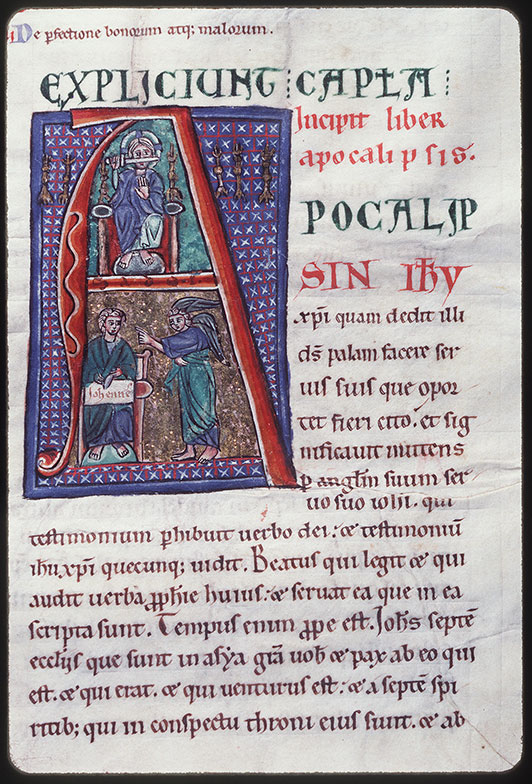 De ꝑfectione bonorum atq; malorum.
EXPLICIUNT CAPŁA
Incipit liber
apocalipsis.
APOCALIP
SIN IħY
xp̄i quam dedit illi
d̄s palam facere ser
uis suis que opor
tet fieri cito. et sig
nificauit mittens
ꝑ angl̄m suum ser
uo suo ioħi. qui
testimonium ꝑhibuit uerbo dei. ⁊ testimoniū
iħu xp̄i quecunq; uidit. Beatus qui legit ⁊ qui
audit uerba ꝓph̄ie huius. ⁊ seruat ea que in ea
scripta sunt. Tempus enim ꝓpe est. Joħs septē
eccl̄iis que sunt in asẏa gr̄a uob̄ ⁊ pax ab eo qui
est. ⁊ qui erat. ⁊ qui uenturus est. ⁊ a septē spi
ritib; qui in conspectu throni eius sunt. ⁊ ab
Johannes